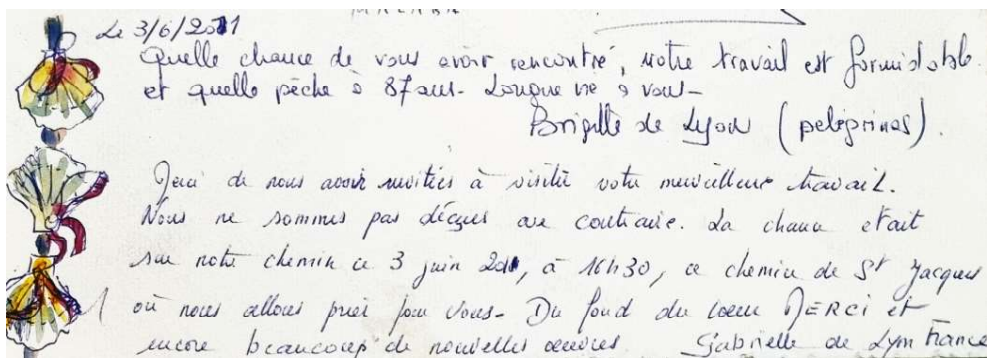 Le 3/6/2011
Quelle chance de vous avoir rencontré, votre travail est formidable.
et quelle pêche à 87 ans - Longue vie à vous -
Brigitte de Lyon (peligrinas).
Merci de nous avoir invitées à visiter votre merveilleux travail.
Nous ne sommes pas déçues au contraire. La chance était
sur notre chemin ce 3 juin 2011, à 16h30, ce chemin de St Jacques
où nous allons prier pour vous - Du fond du coeur MERCI et
encore beaucoup de nouvelles oeuvres Gabrielle de Lyon France